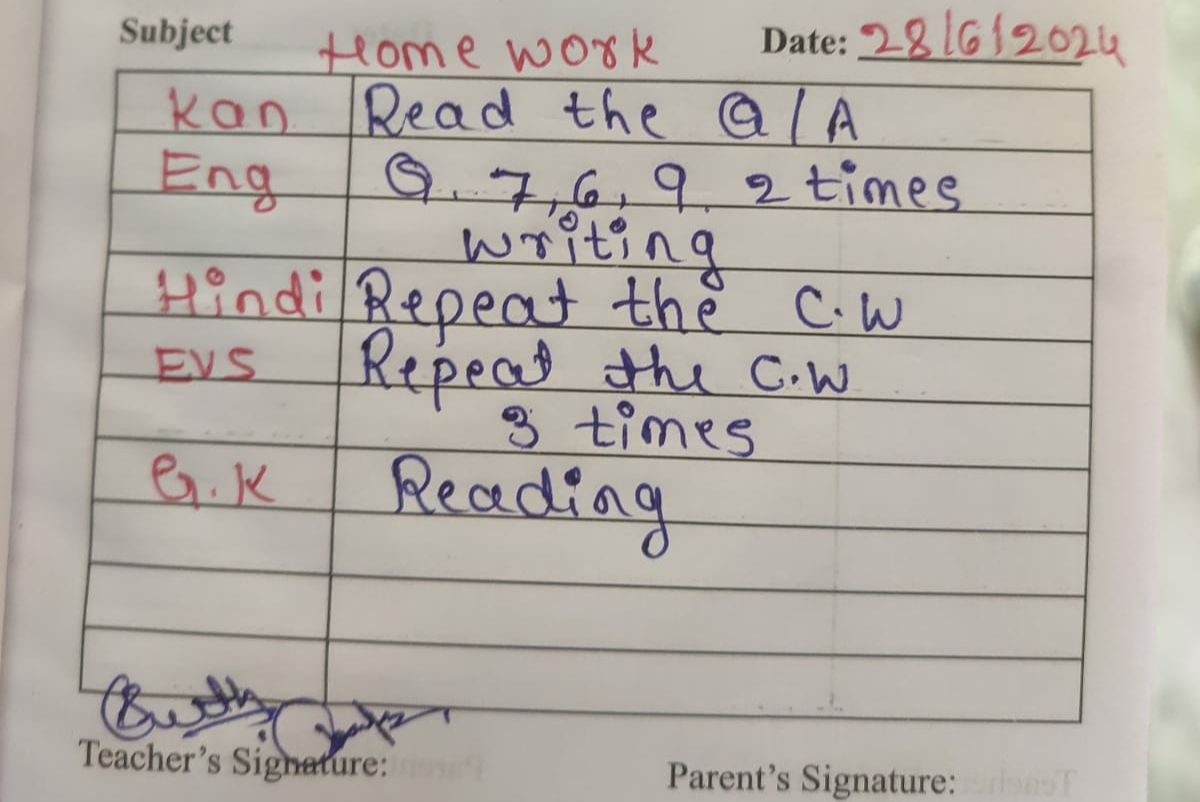 Subject Home work Date: 28/6/2024
Kan Read the Q/A
Eng Q. 7, 6, 9. 2 times
writing
Hindi Repeat the C.W
EVS Repeat the C.W
3 times
G.K Reading
Teacher's Signature: Parent's Signature: